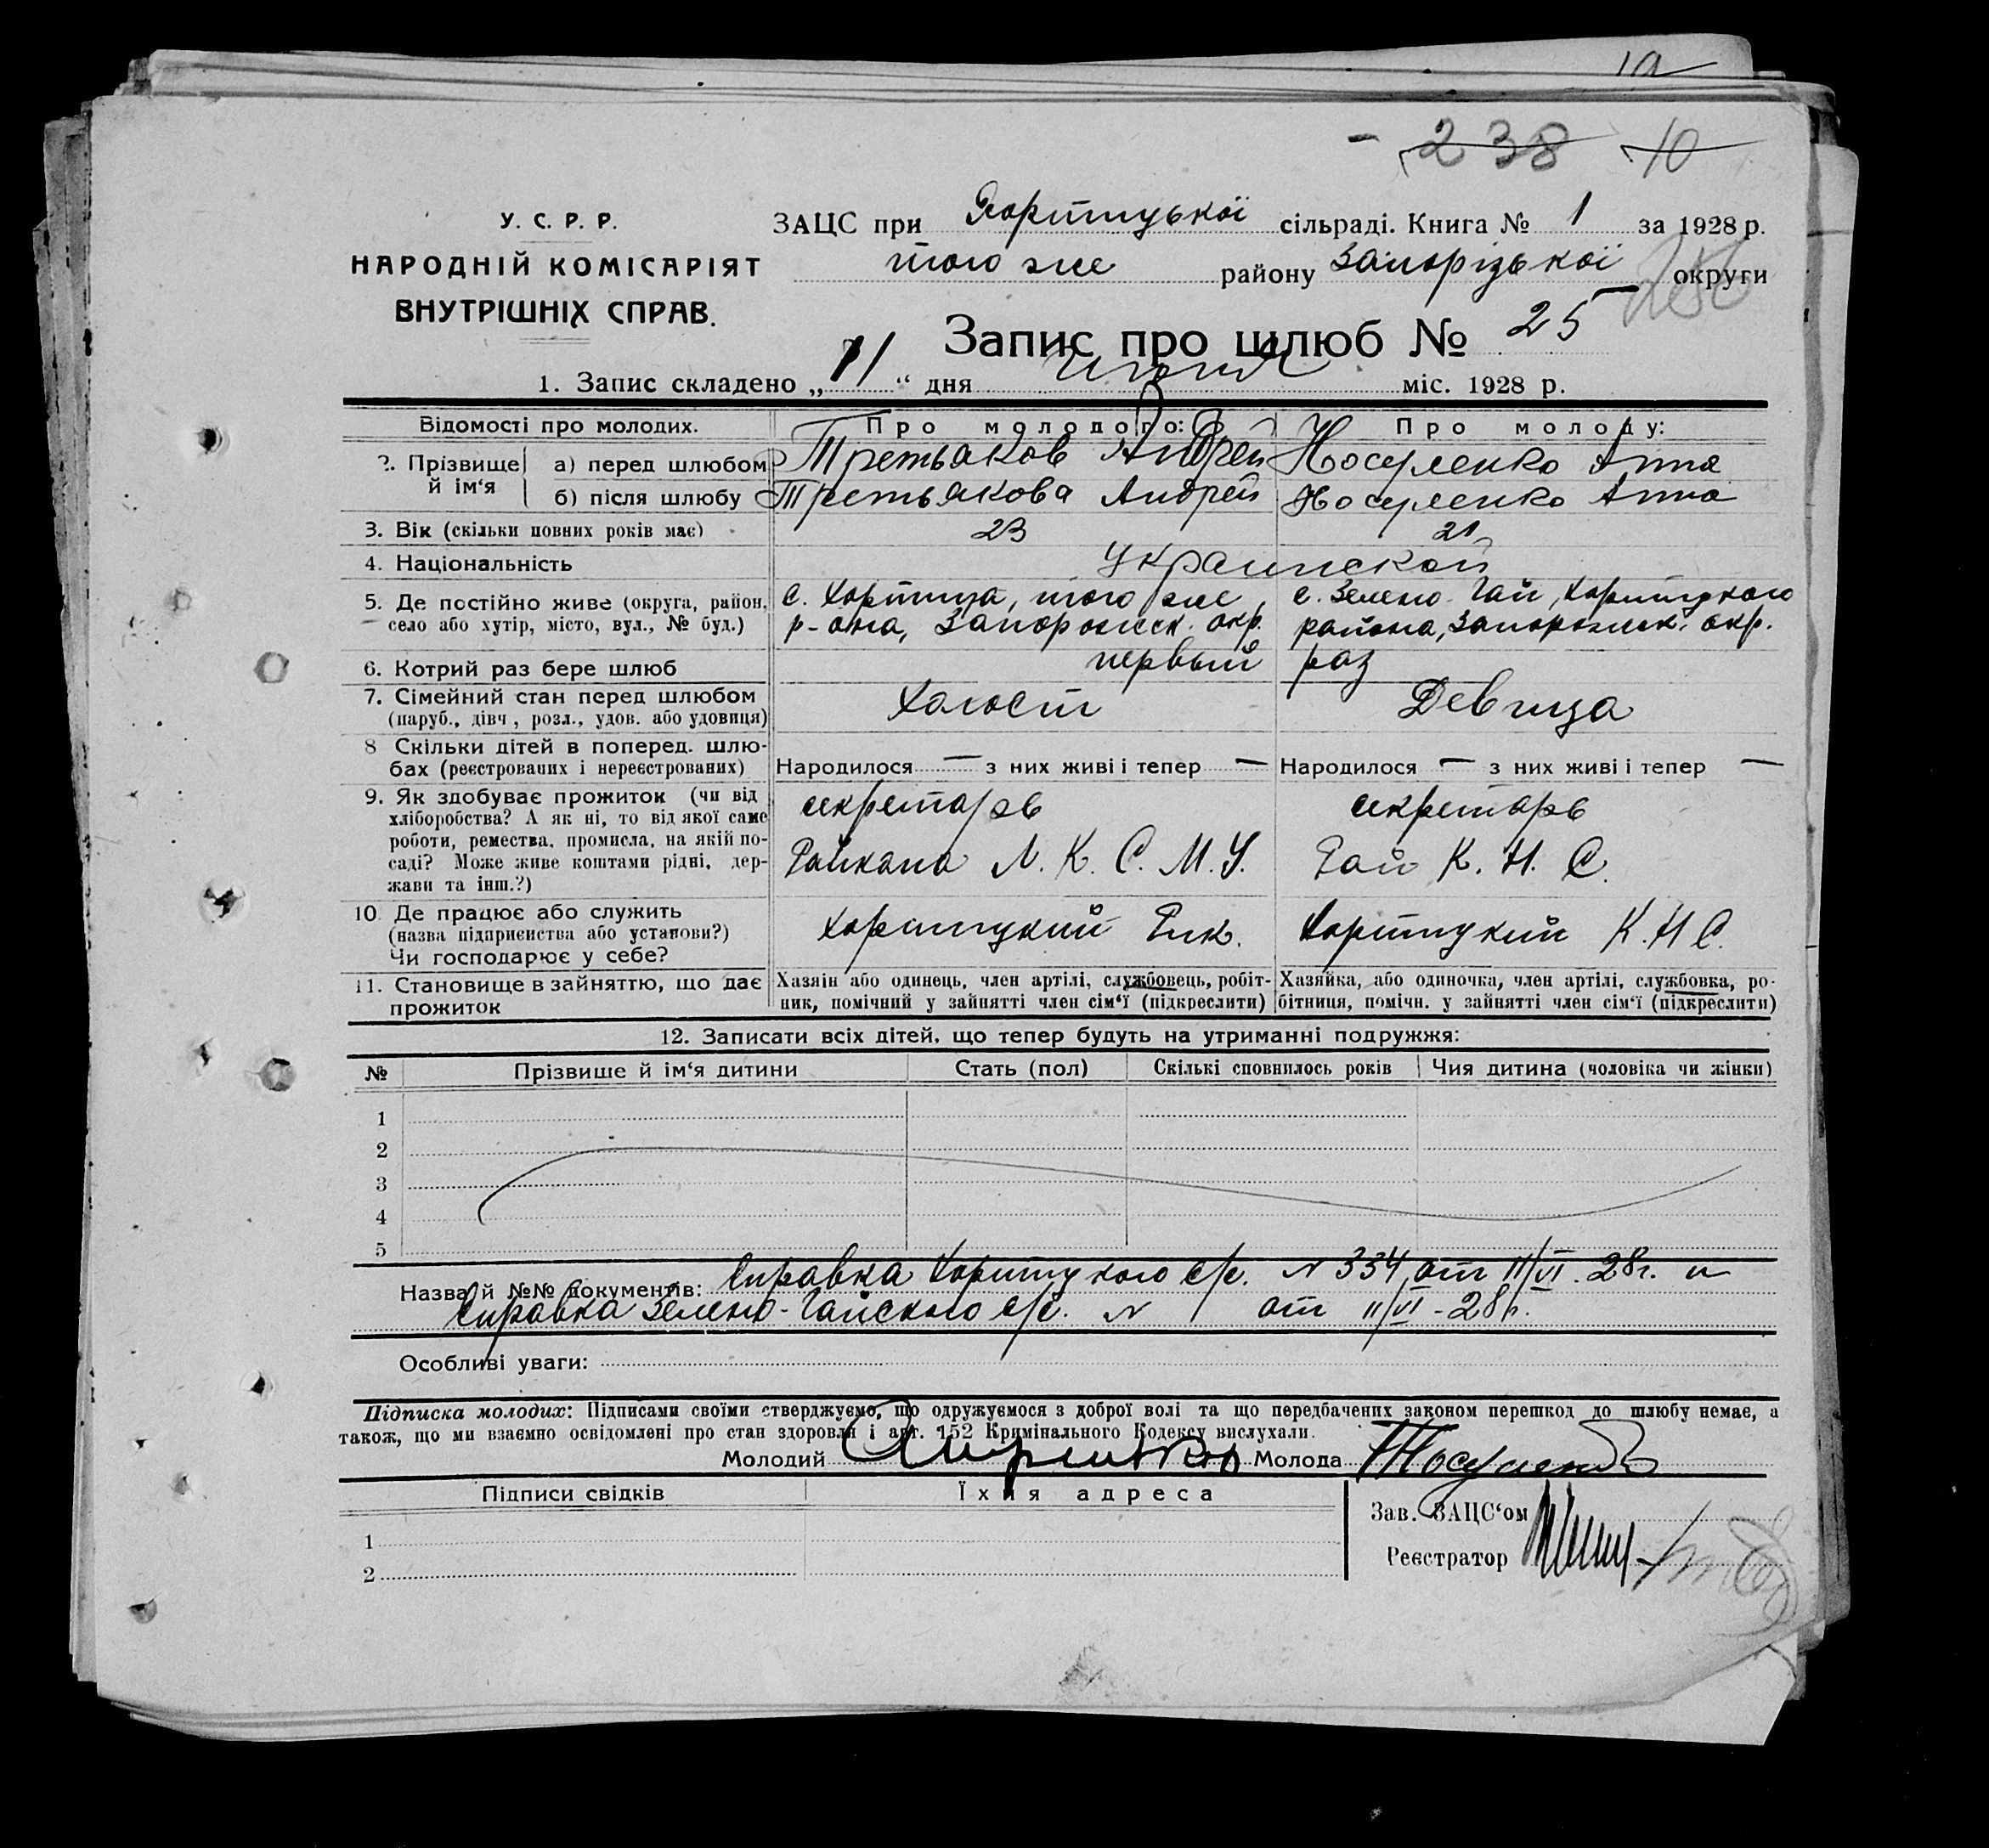 19
- 238 10
У. С. Р. Р.
НАРОДНІЙ КОМІСАРІЯТ
ВНУТРІШНІХ СПРАВ.
ЗАЦС при Хортицької сільраді. Книга № 1 за 1928 р.
того же району Запорізької округи
Запис про шлюб № 25
1. Запис складено „11“ дня июня міс. 1928 р.
Відомості про молодих. Про молодого: Про молоду:
2. Прізвище й ім‘я а) перед шлюбом Третьяков Андрей Носуленко Анна
б) після шлюбу Третьякова Андрей Носуленко Анна
3. Вік (скільки повних років має) 23 21
4. Національність Украинской
5. Де постійно живе (округа, район, с. Хортица, того же с. Зелено-Гай, Хортицкого
село або хутір, місто, вул., № буд.) р-она, Запорожск. окр. района, Запорожск. окр.
6. Котрий раз бере шлюб первый раз
7. Сімейний стан перед шлюбом Холост Девица
(паруб., дівч., розл., удов. або удовиця)
8 Скільки дітей в поперед. шлю-
бах (реєстрованих і нереєстрованих) Народилося — з них живі і тепер — Народилося — з них живі і тепер —
9. Як здобуває прожиток (чи від секретарь секретарь
хліборобства? А як ні, то від якої саме
роботи, ремества, промисла, на якій по- Райкома Л. К. С. М. У. Рай К. Н. С.
саді? Може живе коштами рідні, дер-
жави та інш.?)
10. Де працює або служить Хортицкий Рик. Хортицкий К. Н С.
(назва підприєиства або установи?)
Чи господарює у себе?
11. Становище в зайняттю, що дає Хазяін або одинець, член артілі, службовець, робіт- Хазяйка, або одиночка, член артілі, службовка, ро-
прожиток ник, помічний у зайнятті член сім‘ї (підкреслити) бітниця, помічн. у зайнятті член сім‘ї (підкреслити)
12. Записати всіх дітей, що тепер будуть на утриманні подружжя:
№ Прізвище й ім‘я дитини Стать (пол) Скількі сповнилось років Чия дитина (чоловіка чи жінки)
1
2
3
4
5
Назва й №№ документів: Справка Хортицкого с/с. N 334 от 11/VI. 28г. и
Справка Зелено-Гайского с/с. N от 11/VI-28г.
Особливі уваги:
Підписка молодих: Підписами своїми стверджуємо, що одружуємося з доброї волі та що передбачених законом перешкод до шлюбу немає, а
також, що ми взаємно освідомлені про стан здоровля і арт. 152 Кримінального Кодексу вислухали.
Молодий Молода Носуленко
Підписи свідків Їхня адреса
Зав. ЗАЦС‘ом
1
Реєстратор
2